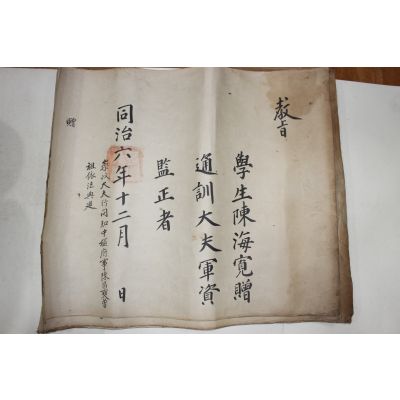 敎旨
學生陳海寬贈
通訓大夫軍資
監正者
同治六年十二月 日
大夫行同知中樞府事陳昌 曾
祖依法典追
贈